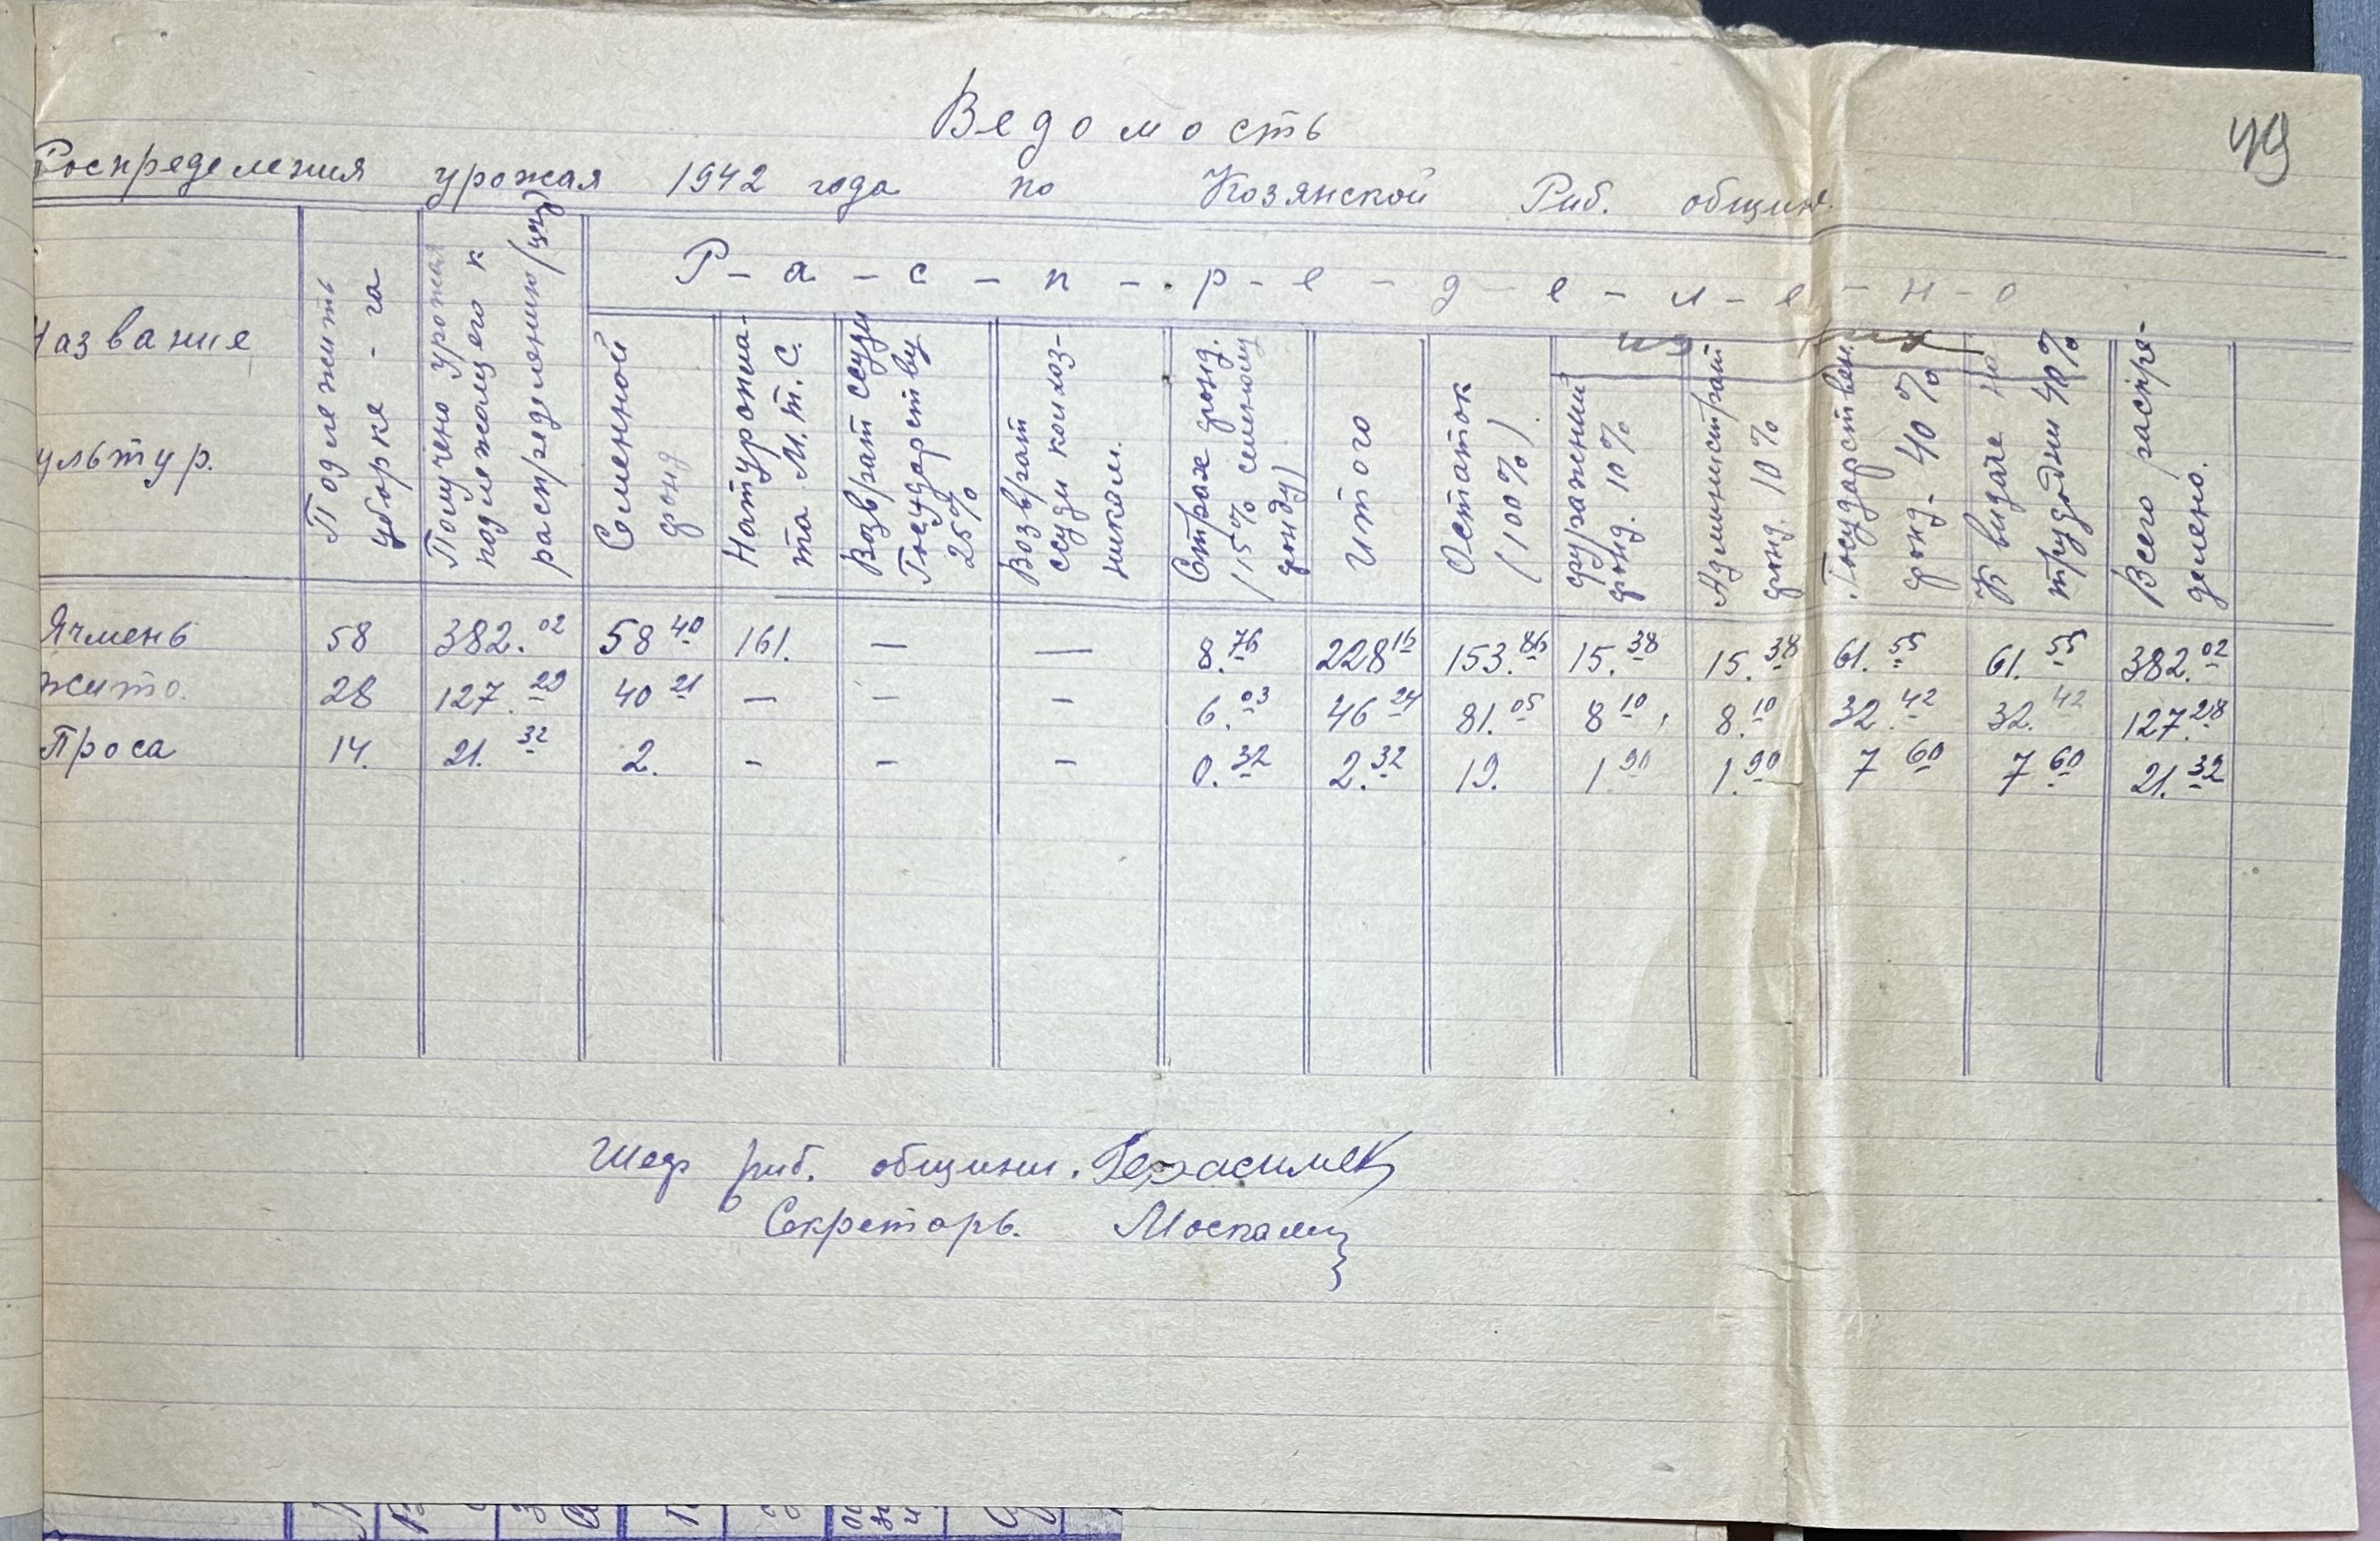 49
Ведомость
Роспределения урожая 1942 года по Козянской Риб. общине.
Р-а-с-п-р-е-д-е-л-е-н-о
из них
Название
культур.
Подлежить
уборке - га
Получено урожая
подлежащего к
распределению (цн)
Семенной
фонд
Натуропла-
та М.Т.С.
Возврат ссуди
Государству
25%
Возврат
ссуди колхоз-
никам.
Страх фонд.
(15% семеному
фонду)
Итого
Остаток
(100%)
Фуражний
фонд. 10%
Администрат
фонд. 10%
Государствен.
фонд. 40%
К видаче на
трудодни 40%
Всего распре-
делено.
Ячмень 58 382.02 58 40 161. — — 8.76 228 16 153.86 15.38 15.38 61.55 61.55 382.02
Жито. 28 127.29 40 21 — — - 6.03 46 24 81.05 8 10 8.10 32.42 32.42 127.28
Проса 14. 21.32 2. - - - 0.32 2.32 19. 1 90 1.90 7 60 7 60 21.32
Шеф риб. общини. Герасимек
Секреторь.